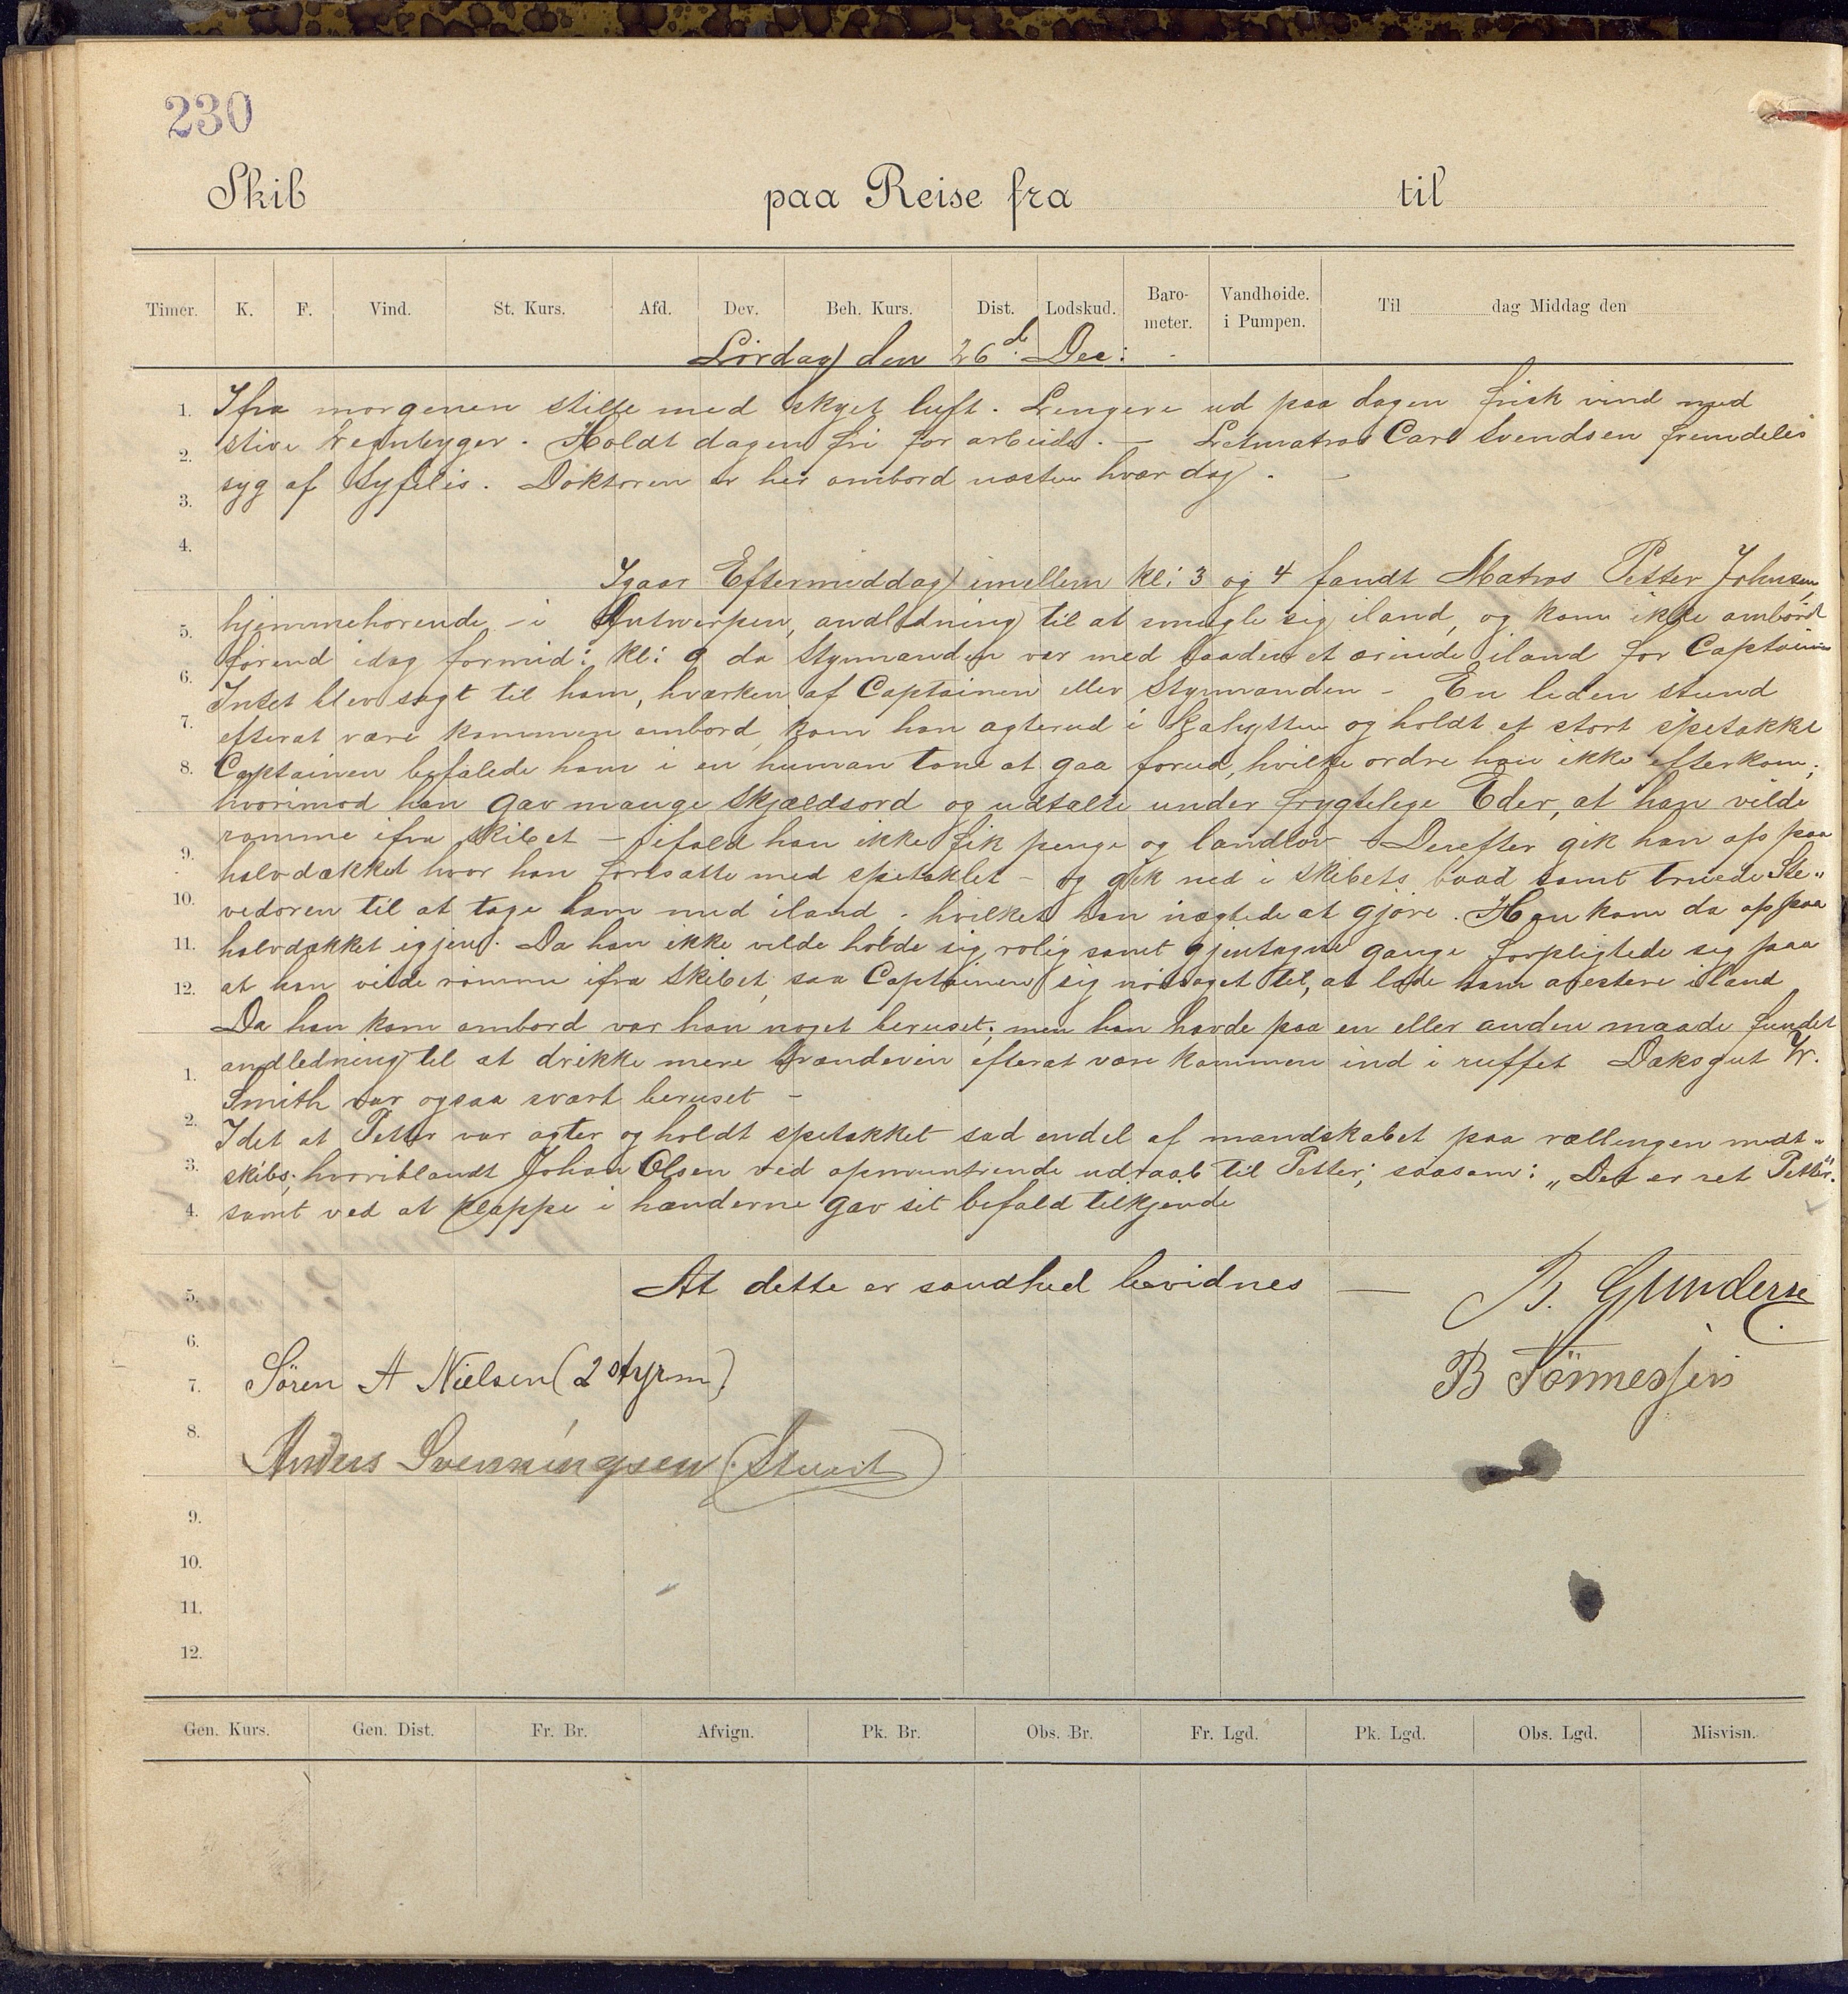 230
Skib paa Reise fra til
Timer. K. F. Vind. St. Kurs. Afd. Dev. Beh. Kurs. Dist. Lodskud. Baro-meter. Vandhøide. i Pumpen. Til dag Middag den
Lördag den 26d. Dec:
1. Ifra morgenen stille med skyet luft. Lengere ud paa dagen frisk vind med
2. stive Regnbyger. Holdt dagen fri for arbeide. — Letmatros Carl Svendsen fremdeles
3. syg af Syfilis. Doktoren er her ombord næsten hvær dag. —
4.
Igaar Eftermiddag imellem kl: 3 og 4 fandt Matros Petter Johnsen,
5. hjemmehorende - i Antwerpen, andledning til at smugle sig iland, og kom ikke ombord
förend idag formid: kl: 9 da Styrmanden var med baaden et ærinde iland for Captainen
6. Intet blev sagt til ham, hværken af Captainen eller Styrmanden - En liden stund
7. efterat være kommen ombord, kom han agterud i Kahytten og holdt et stort spetakkel
8. Captainen befalede ham i en human tone at gaa forud, hvilke ordre han ikke efterkom;
hvorimod han gav mange Skjældsord og udtalte under frygtelege Eder, at han vilde
9. römme ifra skibet - ifald han ikke fik penge og landlov - Derefter gik han op paa
halvdækket hvor han fortsatte med spetaklet - og gik ned i skibets baad samt truede Ste„
10. vedoren til at tage ham med iland, hvilket han nægtede at gjöre. Han kom da op paa
11. halvdækket igjen. Da han ikke vilde holde sig rolig samt gjentagne gange forpligtede sig paa
12. at han vilde römme ifra Skibet, saa Captainen sig nödsaget til, at lade ham arestere iland
Da han kom ombord var han noget beruset; men han havde paa en eller anden maade fundet
1. andledning til at drikke mere brændevin efterat være kommen ind i ruffet Dæksgut W.
Smith var ogsaa svært beruset -
2. Idet at Petter var agter og holdt spetakket sad endel af mandskabet paa rællingen midt„
3. skibs; hvoriblandt Johan Olsen ved opmuntrende udraab til Petter; saasom: „Det er ret Petter".
4. samt ved at klappe i hænderne gav sit befald tilkjende
5. At dette er sandhed bevidnes — B. Gunderse
6.
7. Sören A Nielsen (2 styrm) B Tönnessen
8. Anders Svenningsen (Stuert)
9.
10.
11.
12.
Gen. Kurs. Gen. Dist. Fr. Br. Afvign. Pk. Br. Obs. Br. Fr. Lgd. Pk. Lgd. Obs. Lgd. Misvisn.